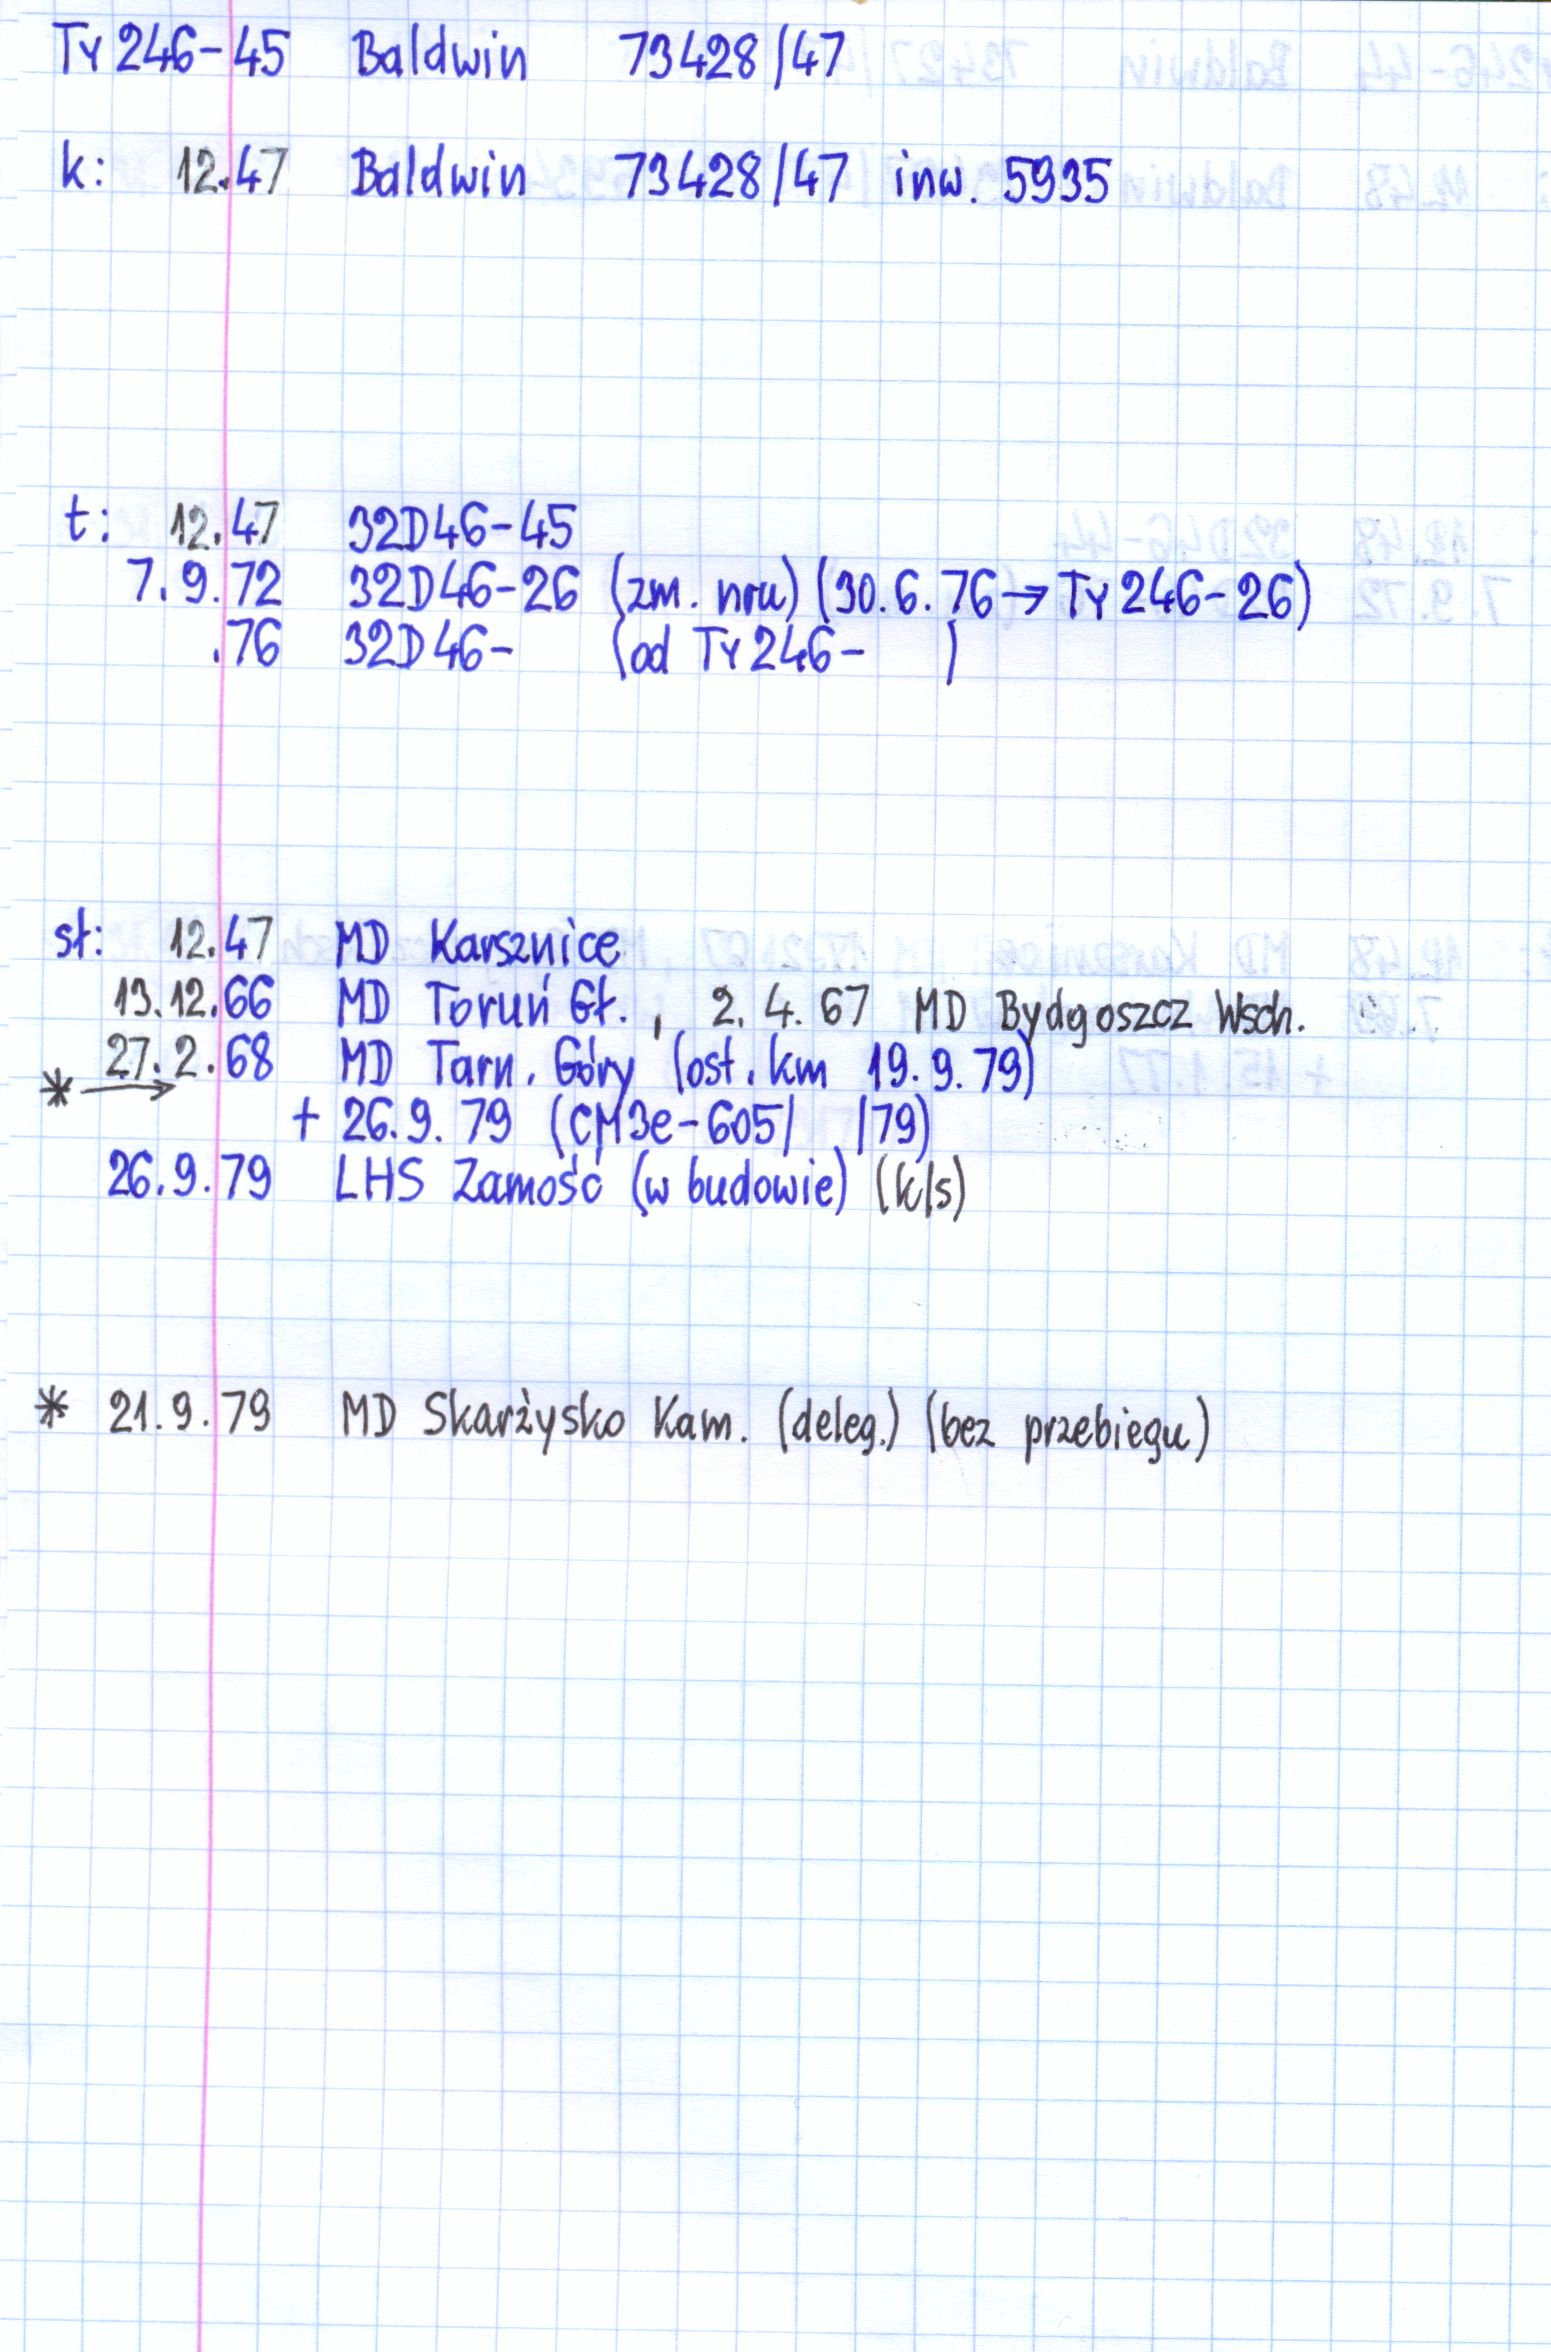 Ty 246-45 Baldwin 73428/47
k: 12.47 Baldwin 73428/47 inw. 5935
t: 12.47 32D46-45
7.9.72 32D46-26 (zm. nru) (30.6.76→Ty 246-26)
.76 32D46- (od Ty 246- )
sł: 12.47 MD Karsznice
13.12.66 MD Toruń Gł. , 2.4.67 MD Bydgoszcz Wsch.
27.2.68 MD Tarn. Góry (ost. km 19.9.79)
* → + 26.9.79 (CM3e-605/ /79)
26.9.79 LHS Zamość (w budowie) (k/s)
* 21.9.79 MD Skarżysko Kam. (deleg.) (bez przebiegu)